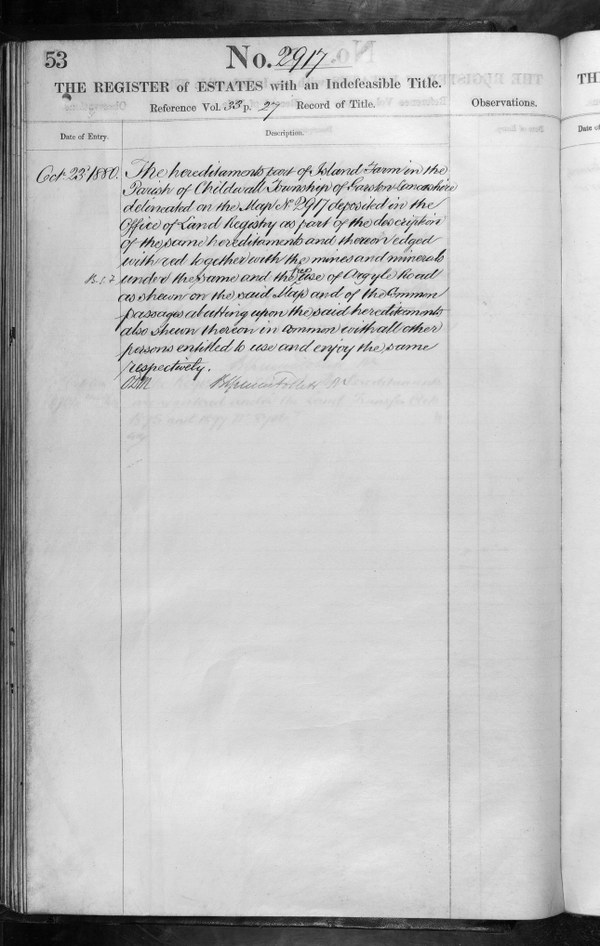 53
No. 2917
THE REGISTER of ESTATES with an Indefeasible Title.
Reference Vol. 33 p. 27 Record of Title.
Observations.
Date of Entry.
Description.
Octr 23d 1880.
The hereditaments part of Island Farm in the
Parish of Childwall Township of Garston Lancashire
delineated on the Map No. 2917 deposited in the
Office of Land Registry as part of the description
of the same hereditaments and thereon edged
with red together with the mines and minerals
under the same and the free use of Argyle Road
as shewn on the said Map and of the Common
passages abutting upon the said hereditaments
also shewn thereon in common with all other
persons entitled to use and enjoy the same
respectively.
TH
Date of